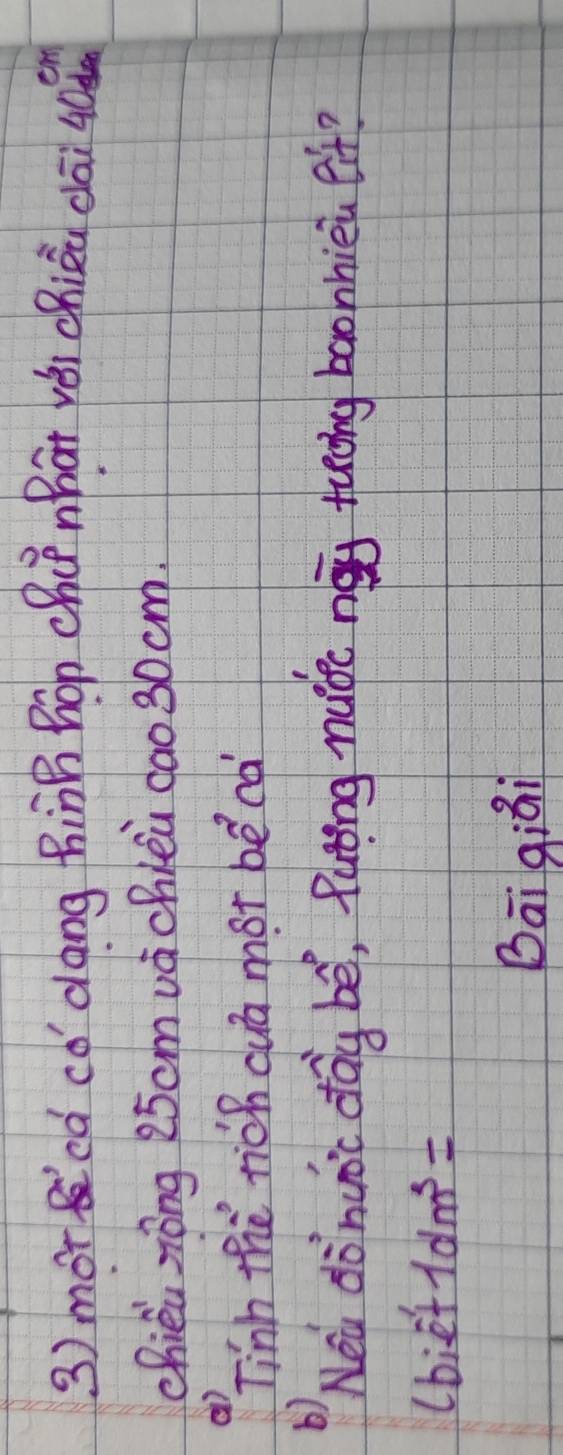 3) một bể cá có dạng hình hộp chữ nhật với chiều dài 40cm
chiều rộng 25cm và chiều cao 30cm.
a) Tính thể tích của một bể cá
b) Nếu đổ nước đầy bể, lượng nước này tương bao nhiêu lít?
(biết 1dm³ =
Bài giải